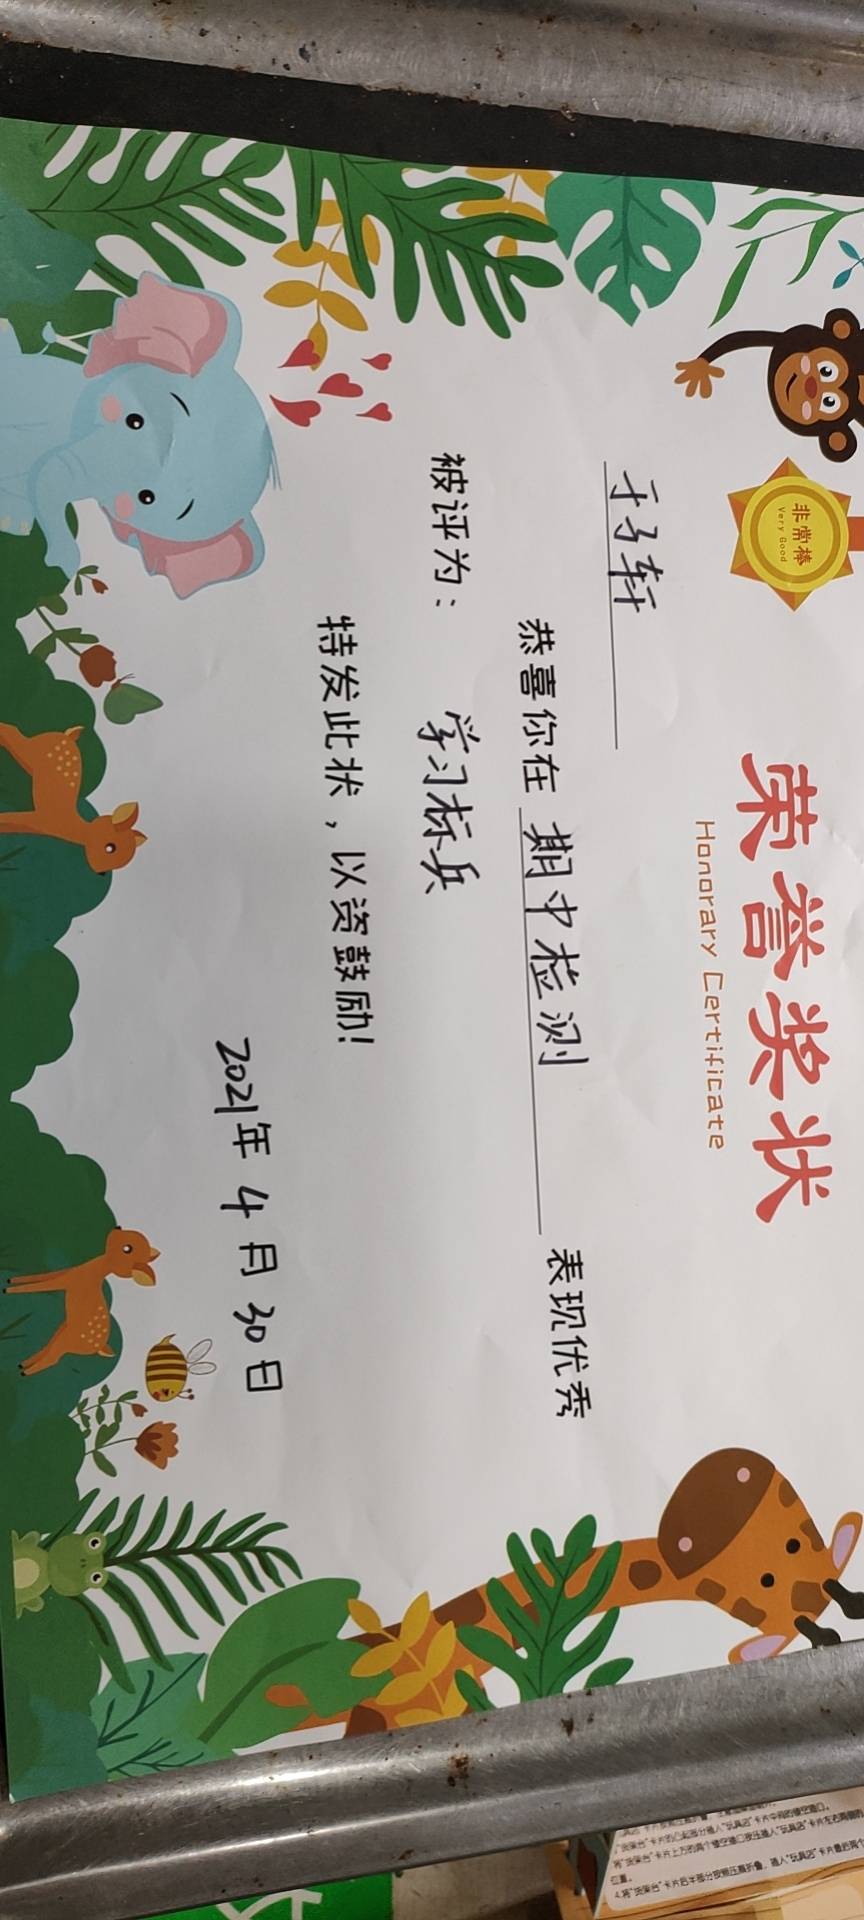 荣誉奖状
Honorary Certificate
非常棒
Very Good
于子轩
恭喜你在 期中检测 表现优秀
被评为： 学习标兵
特发此状，以资鼓励!
2021年4月30日